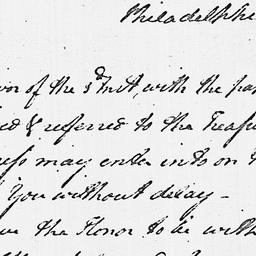 Philadelphi
vor of the 3d Inst, with the pa
ed & referred to the Treasu
ess may enter into on
You without delay -
ve the Honor to be with